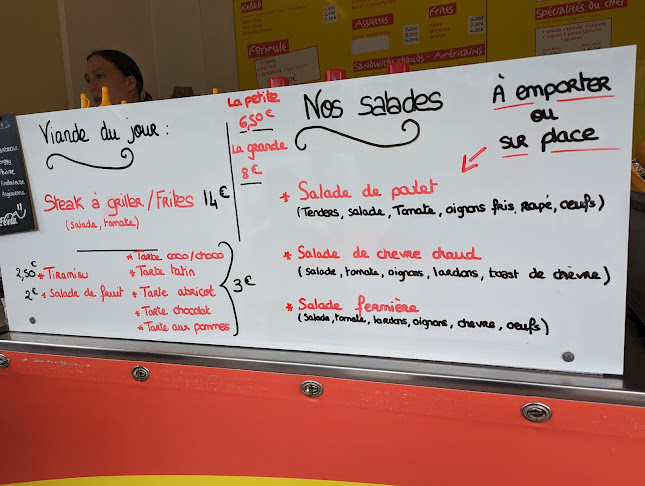 Kebab
Assiettes
Frites
Spécialités du chef
Formule
Sandwichs chauds - Américains
Viande du jour :
Steak à griller / Frites 14 €
(salade, tomate)
2,50€ * Tiramisu
2€ * Salade de fruit
* Tarte coco/choco
* Tarte tatin
* Tarte abricot
* Tarte chocolat
* Tarte aux pommes
3€
La petite
6,50€
La grande
8€
Nos salades
À emporter
ou
sur place
* Salade de poulet
(Tenders, salade, Tomate, oignons fris, rapé, oeufs)
* Salade de chèvre chaud
(salade, tomate, oignons, lardons, toast de chèvre)
* Salade fermière
(salade, tomate, lardons, oignons, chevre, oeufs)